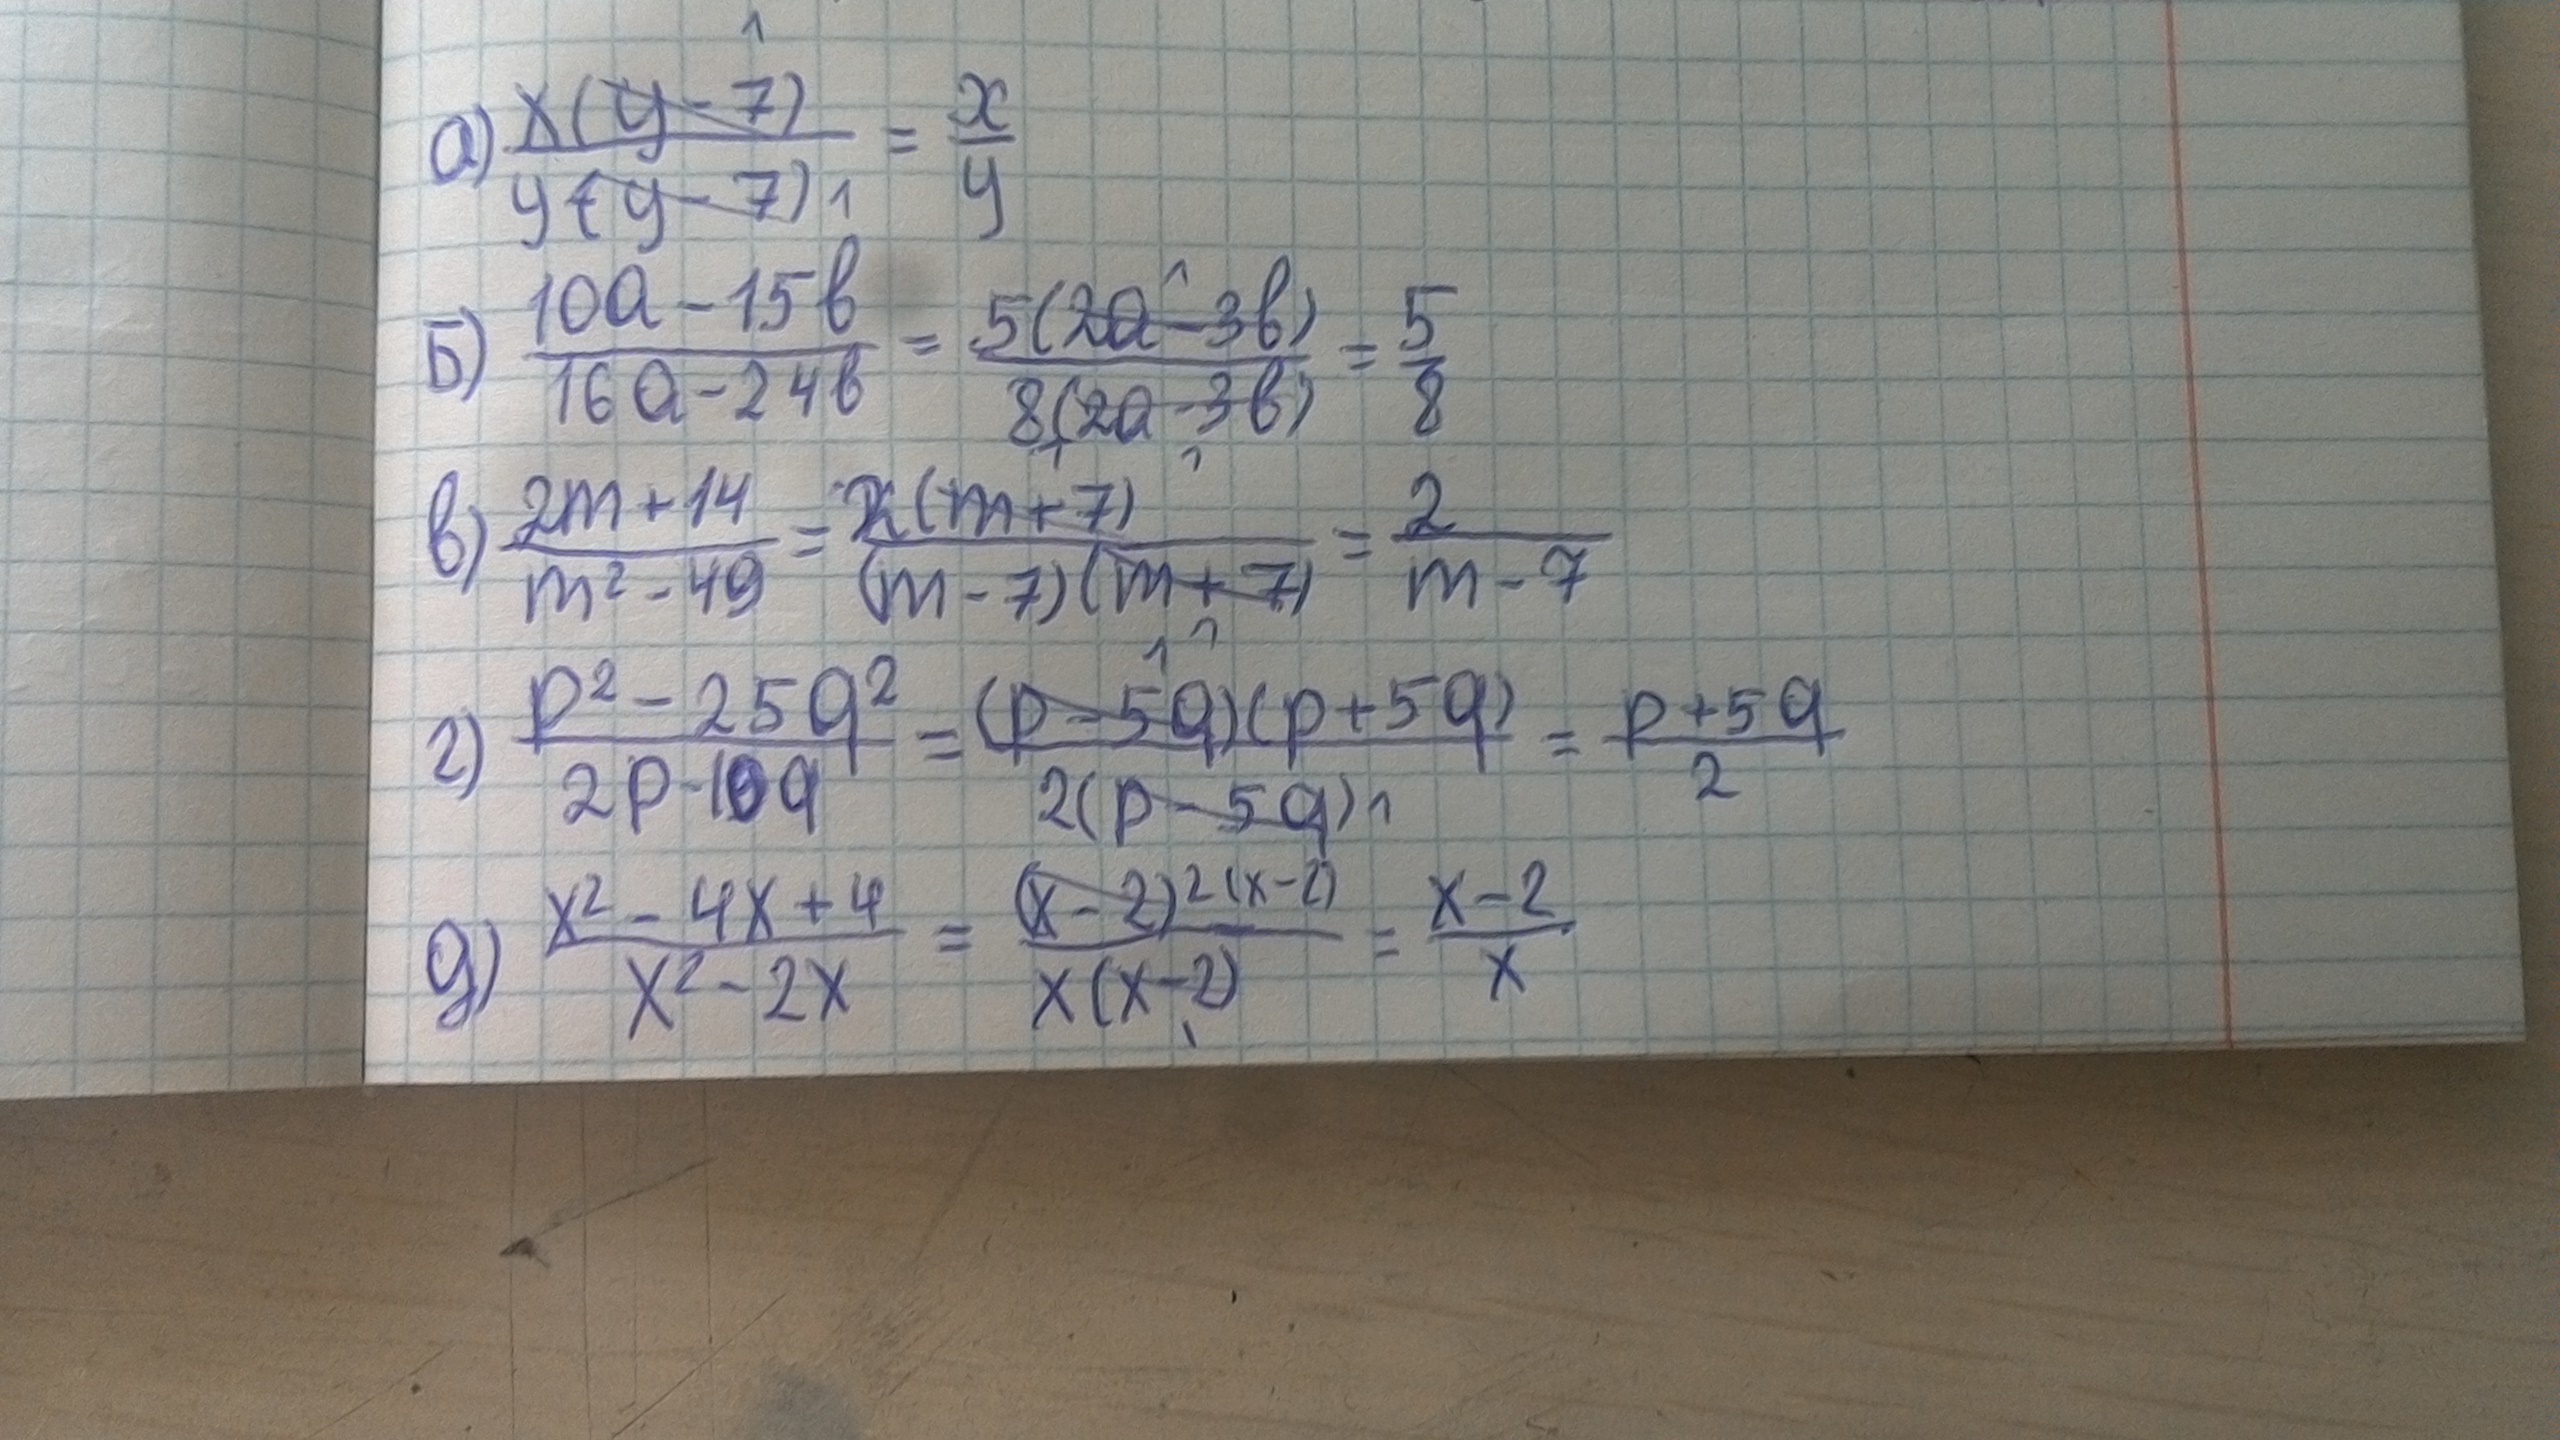 а) x(y-7)/y(y-7) 1 1 = x/y
Б) 10a-15b/16a-24b = 5(2a-3b)/8(2a-3b) 1 1 = 5/8
в) 2m+14/m²-49 = 2(m+7)/(m-7)(m+7) 1 1 = 2/m-7
г) p²-25q²/2p-10q = (p-5q)(p+5q)/2(p-5q) 1 1 = p+5q/2
д) x²-4x+4/x²-2x = (x-2)² (x-2)/x(x-2) 1 = x-2/x